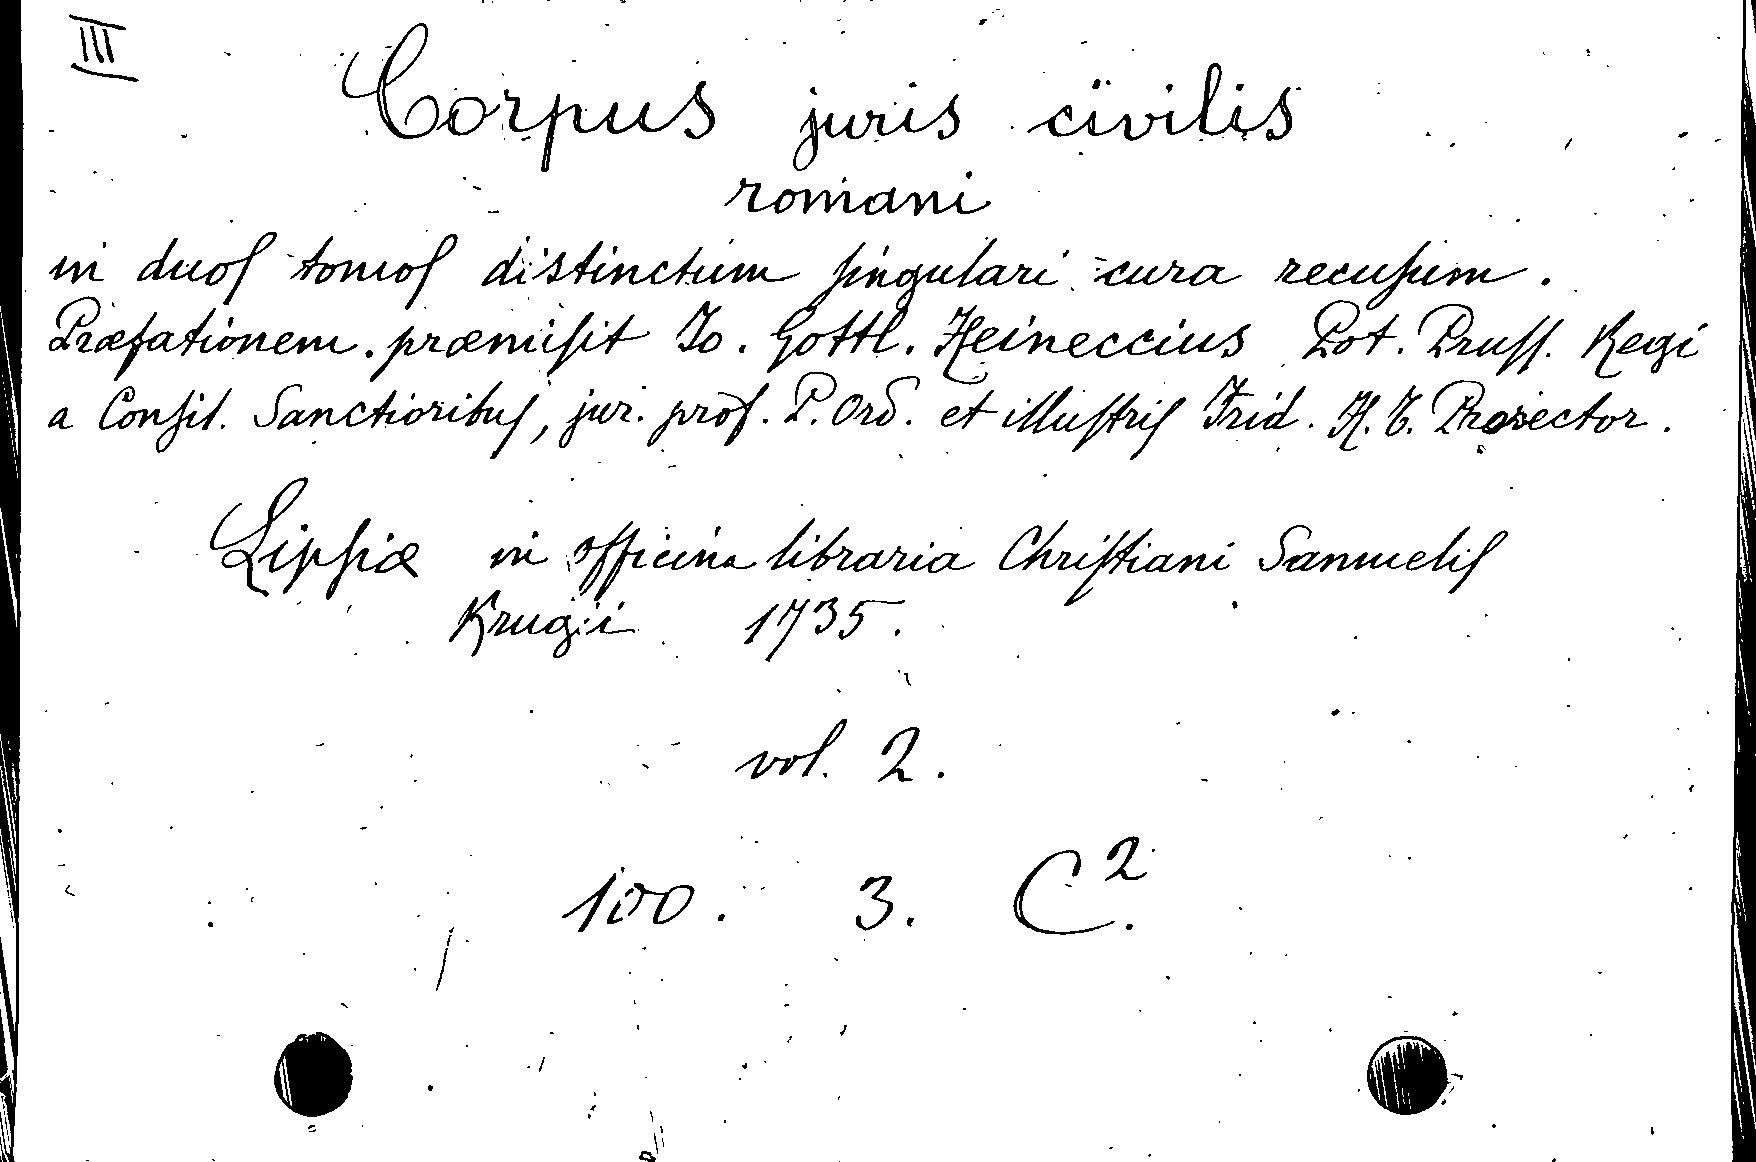 III
Corpus juris civilis
romani
in duoſ tomoſ distinctum ſingulari cura recuſum.
Præfationem præmiſit Io. Gottl. Heineccius Pot. Pruſſ. Regi
a Conſil. Sanctioribuſ, jur. prof. P. Ord. et illuſtriſ Frid. H. T. Prorector.
Lipſiæ in officina libraria Chriſtiani Samueliſ
Krugii 1735.
vol. 2.
100. 3. C².